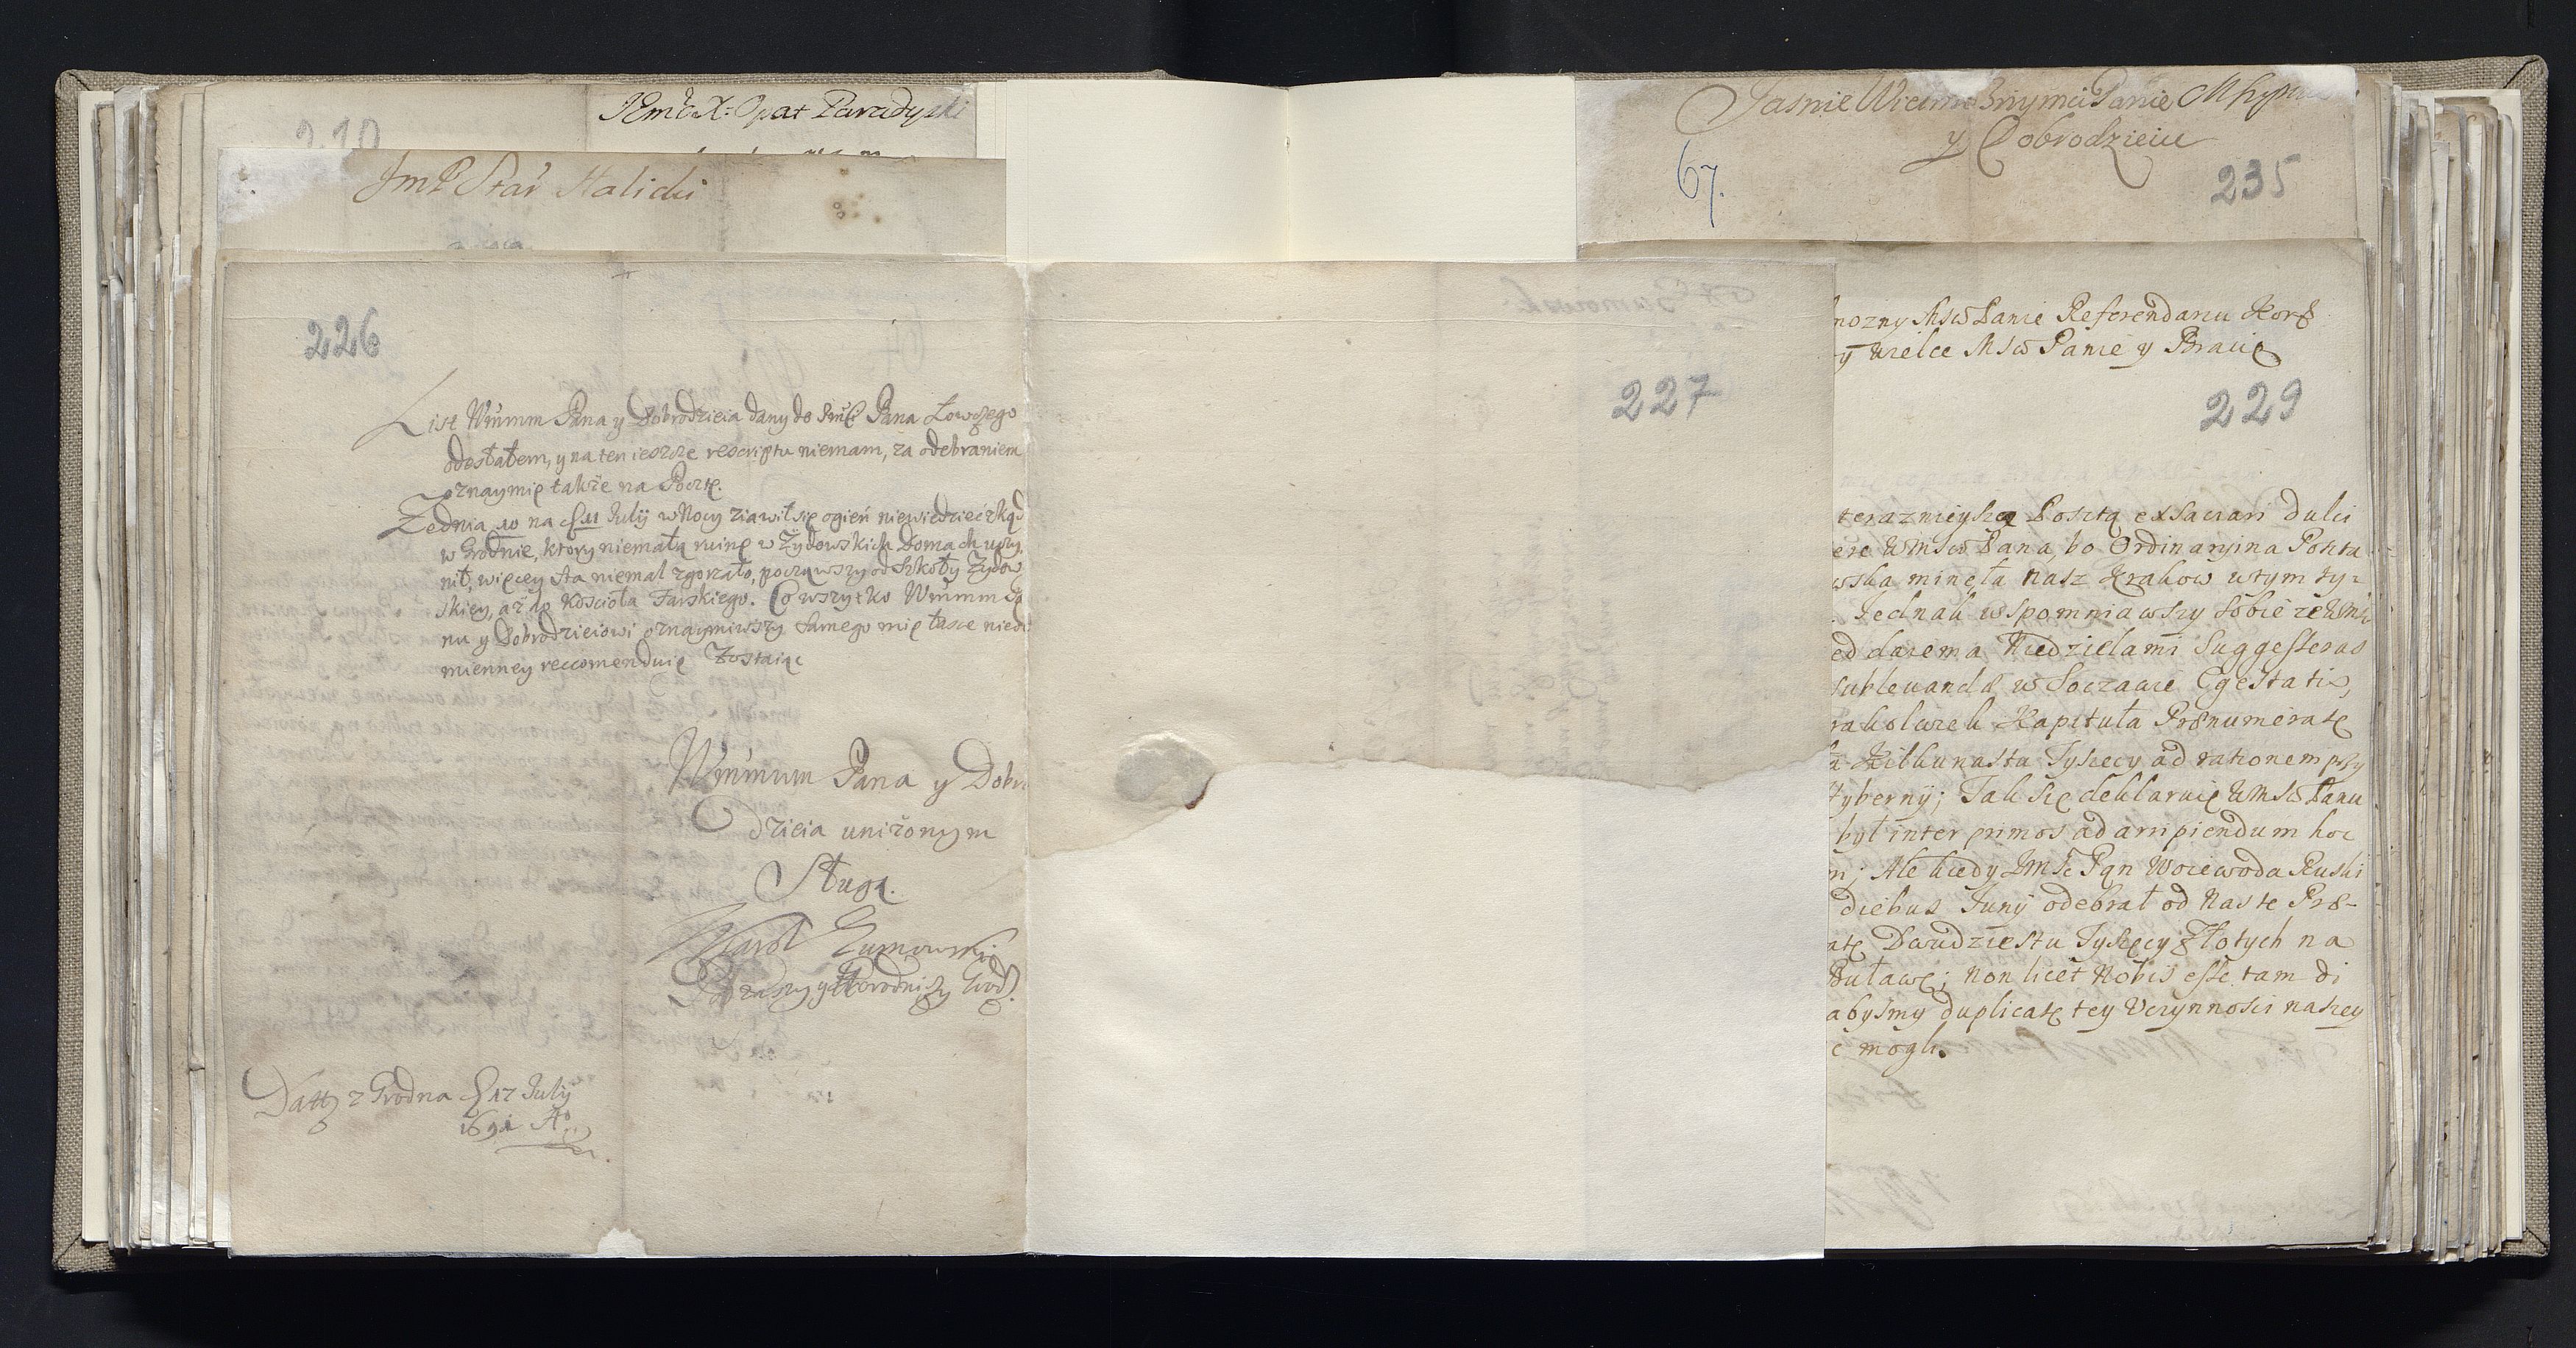 210
JEmć X: Opat Paradyski
JmP Star Halicki
226
List Wmmm Pana y Dobrodzieia dany do Jmć Pana Łowczego
odesłałem, y na ten ieszcze rescriptu niemam, za odebraniem
oznaymię także na Pocztę.
Ze dnia 10 na 11 Julij w Nocy ziawił się ogień niewiedzieć zkąd
w Grodnie, ktory niemałą ruinę w Zydowskich Domach uczy,
nił, więcey sta niemal zgorzało, począwszy od Szkoły Zydow
skiey, aż do Kościoła Farskiego. Co wszytko Wmmm Pa
nu y Dobrodzieiowi oznaymiwszy samego mię łasce nieod
mienney reccomenduię Zostaiąc
Wmmum Pana y Dobro
dzieia uniżonym
Sługą.
Karol
Podczaszy y Horodniczy Grodz.
Datt z Grodna 17 Julij
1691 A°
227
Jasnie Wielmozny mći Panie
y Dobrodzieiu
67.
235
mozny Msw Panie Referendariu Kor
y wielce Msw Panie y Bracie
229
terazmieyszą Posztą exsatiari dulci
ere WMsw Pana, bo Ordinaryina Poszta
wska minęła nasz Krakow w tym ty-
Jednak wspomniawszy sobie że WMsw
ed dwiema Niedzielami suggesseras
sublevanda w Soczawie Egestatis,
rakolwiek Kapituła Prænumeratę
Kilkunastu Tysięcy ad rationem przy
Hybernij; Tak się deklaruię WMsw Panu
był inter primos ad arripiendum hoc
m; Ale kiedy JMSc Pan Woiewoda Ruski
diebus Junij odebrał od Nas te Præ-
atę Dwudziestu Tysięcy Złotych na
Buławę; non licet Nobis esse tam di
abysmy duplicatę tey Uczynnosci naszey
c mogli.